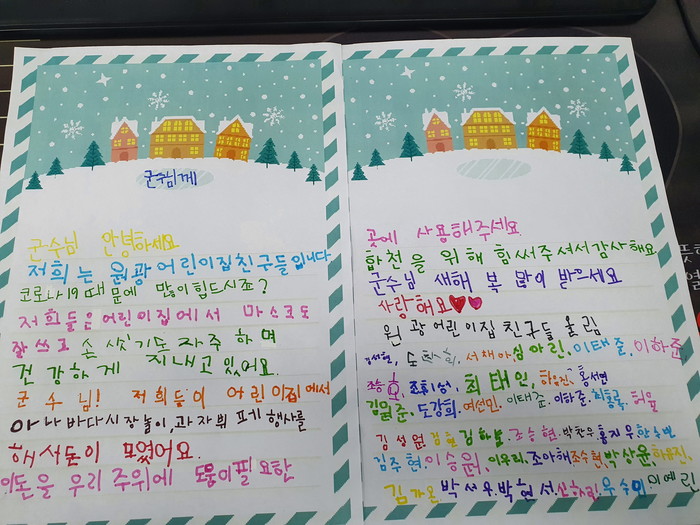 군수님께
군수님 안녕하세요
저희는 원광어린이집친구들입니다
코로나19때문에 많이힘드시죠?
저희들은어린이집에서 마스크도
잘쓰고 손 씻기도 자주 하며
건강하게 지내고 있어요.
군수님! 저희들이 어린이집에서
아나바다시장놀이,과자뷔페행사를
해서돈이 모였어요.
이돈을 우리 주위에 도움이필요한
곳에 사용해주세요.
합천을 위해 힘써주셔서감사해요
군수님 새해 복 많이 받으세요
사랑해요♥♥
원광어린이집친구들올림
서채아,심아린,이태준,이하준
최태인, 홍서연
김윤준,도강희,여선민,이태준,이하준,
김성원 박찬우,홍지우
김주현,이승원,이우리,조아해,조수현,박상윤,
김가온,박서우,박현서, 우수민,이예린